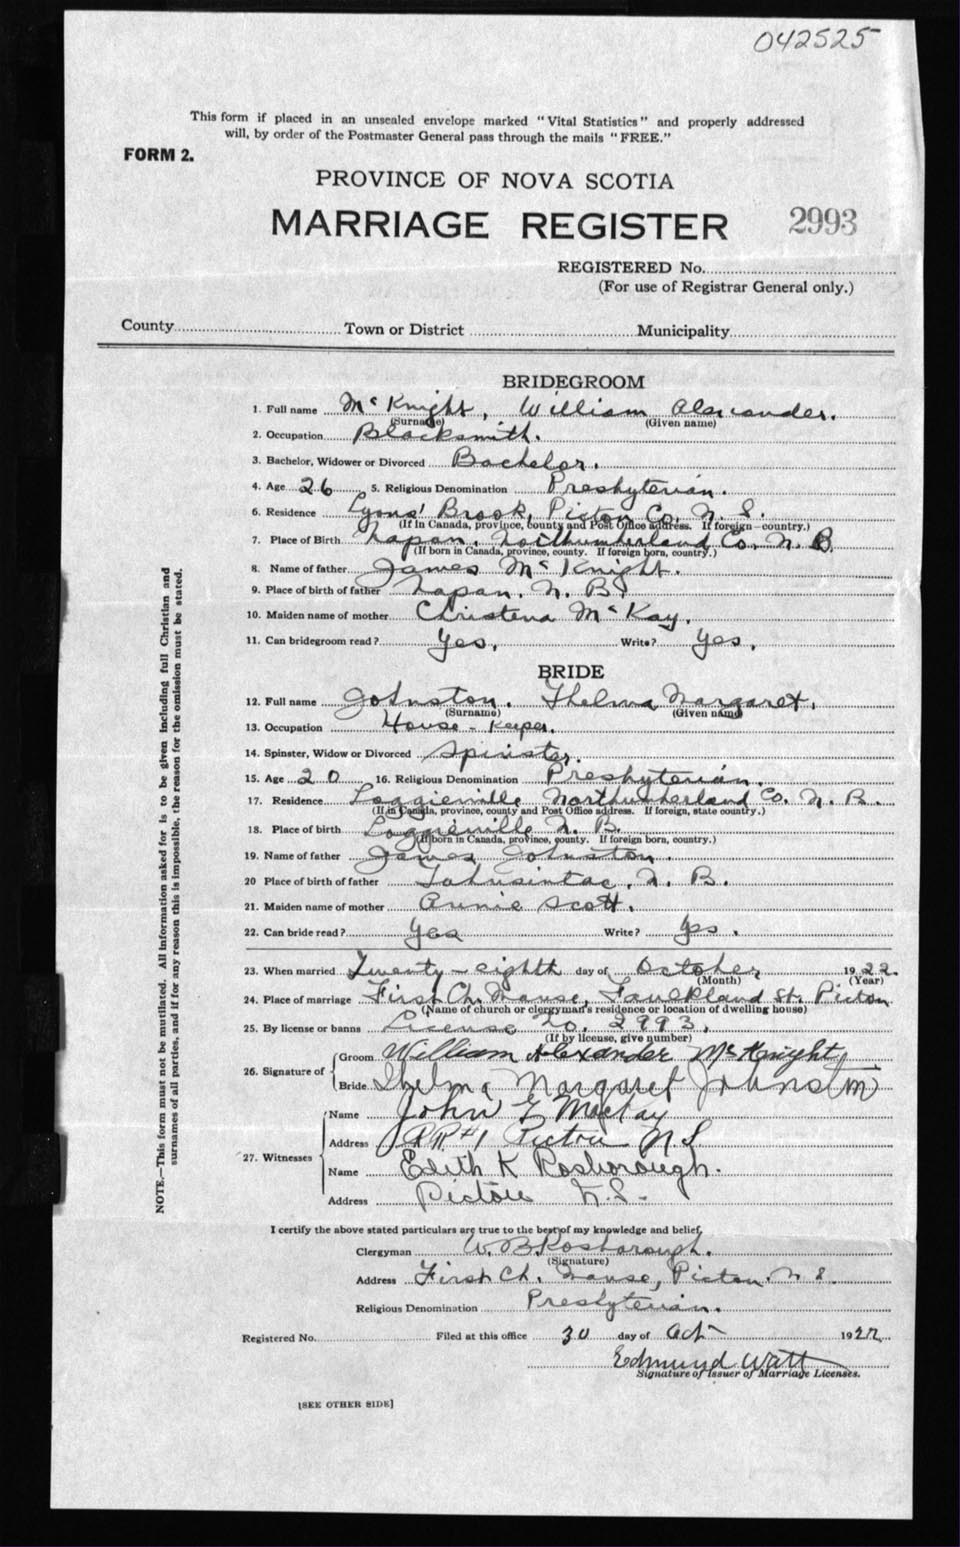 042525
This form if placed in an unsealed envelope marked "Vital Statistics" and properly addressed
will, by order of the Postmaster General pass through the mails "FREE."
FORM 2.
PROVINCE OF NOVA SCOTIA
MARRIAGE REGISTER 2993
REGISTERED No.
(For use of Registrar General only.)
County Town or District Municipality
BRIDEGROOM
1. Full name McKnight, William Alexander.
(Surname) (Given name)
2. Occupation Blacksmith.
3. Bachelor, Widower or Divorced Bachelor.
4. Age 26 5. Religious Denomination Presbyterian.
6. Residence Lyons' Brook, Pictou Co. N. S.
(If in Canada, province, county and Post Office address. If foreign - country.)
7. Place of Birth Napan, Northumberland Co. N. B.
(If born in Canada, province, county. If foreign born, country.)
8. Name of father James McKnight.
9. Place of birth of father Napan. N. B.
10. Maiden name of mother Christena McKay.
11. Can bridegroom read? Yes. Write? Yes.
BRIDE
12. Full name Johnston. Thelma Margaret.
(Surname) (Given name)
13. Occupation House-keeper.
14. Spinster, Widow or Divorced Spinster.
15. Age 20 16. Religious Denomination Presbyterian.
17. Residence Loggieville Northumberland Co. N. B.
(If in Canada, province, county and Post Office address. If foreign, state country.)
18. Place of birth Loggieville N. B.
(If born in Canada, province, county. If foreign born, country.)
19. Name of father James Johnston.
20 Place of birth of father Tabusintac, N. B.
21. Maiden name of mother Annie Scott.
22. Can bride read? Yes Write? Yes.
23. When married Twenty-eighth day of October 1922.
(Month) (Year)
24. Place of marriage First Ch. Manse, Faulkland St. Pictou
(Name of church or clergyman's residence or location of dwelling house)
25. By license or banns License No. 2993.
(If by license, give number)
26. Signature of
Groom William Alexander McKnight
Bride Thelma Margaret Johnston
27. Witnesses
Name John E MacKay
Address RR #1 Pictou N.S.
Name Edith K Rosborough.
Address Pictou N.S.
I certify the above stated particulars are true to the best of my knowledge and belief.
Clergyman W. B Rosborough.
(Signature)
Address First Ch. Manse, Pictou. N S.
Religious Denomination Presbyterian.
Registered No. Filed at this office 30 day of Oct 1922
Edmund Watt
Signature of Issuer of Marriage Licenses.
[SEE OTHER SIDE]
NOTE.—This form must not be mutilated. All information asked for is to be given including full Christian and
surnames of all parties, and if for any reason this is impossible, the reason for the omission must be stated.